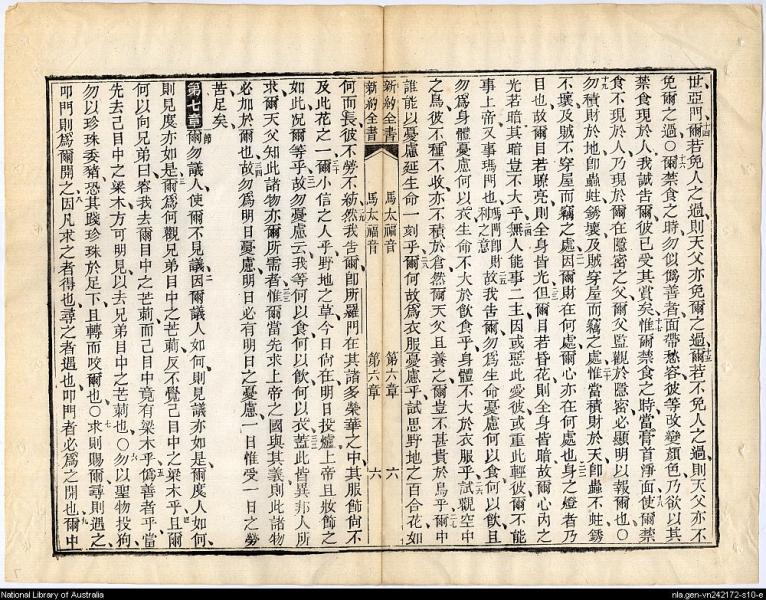 世亞門爾若免人之過則天父亦免爾之過爾若不免人之過則天父亦不
免爾之過○爾禁食之時勿似僞善者面帶愁容彼等改變顏色乃欲以其
禁食現於人我誠告爾彼已受其賞矣惟爾禁食之時當膏首淨面使爾禁
食不現於人乃現於爾在隱密之父爾父監觀於隱密必顯明以報爾也○
勿積財於地卽蟲蛀銹壞及賊穿屋而竊之處惟當積財於天卽蟲不蛀銹
不壞及賊不穿屋而竊之處因爾財在何處爾心亦在何處也身之燈者乃
目也故爾目若瞭亮則全身皆光但爾目若昏花則全身皆暗故爾心內之
光若暗其暗豈不大乎無人能事二主因或惡此愛彼或重此輕彼爾不能
事上帝又事瑪門也瑪門卽財利之意故我告爾勿爲生命憂慮何以食何以飲且
勿爲身體憂慮何以衣生命不大於飲食乎身體不大於衣服乎試觀空中
之鳥彼不種不收亦不積於倉然爾天父且養之爾豈不甚貴於鳥乎爾中
誰能以憂慮延生命一刻乎爾何故爲衣服憂慮乎試思野地之百合花如
新約全書 馬太福音 第六章 六
新約全書 馬太福音 第六章 六
何而長彼不勞不紡然我告爾卽所羅門在其諸多榮華之中其服飾尙不
及此花之一爾小信之人乎野地之草今日尙在明日投爐上帝且妝飾之
如此况爾等乎故勿憂慮云我等何以食何以飲何以衣蓋此皆異邦人所
求爾天父知此諸物亦爾所需者惟爾當先求上帝之國與其義則此諸物
必加於爾也故勿爲明日憂慮明日必有明日之憂慮一日惟受一日之勞
苦足矣
第七章 爾勿議人使爾不見議因爾議人如何則見議亦如是爾度人如何
則見度亦如是爾爲何觀兄弟目中之芒莿反不覺己目中之梁木乎且爾
何以向兄弟曰容我去爾目中之芒莿而己目中竟有梁木乎僞善者乎當
先去己目中之梁木方可明見以去兄弟目中之芒莿也○勿以聖物投狗
勿以珍珠委豬恐其踐珍珠於足下且轉而咬爾也○求則賜爾尋則遇之
叩門則爲爾開之因凡求之者得也尋之者遇也叩門者必爲之開也爾中
National Library of Australia
nla.gen-vn242172-s10-e